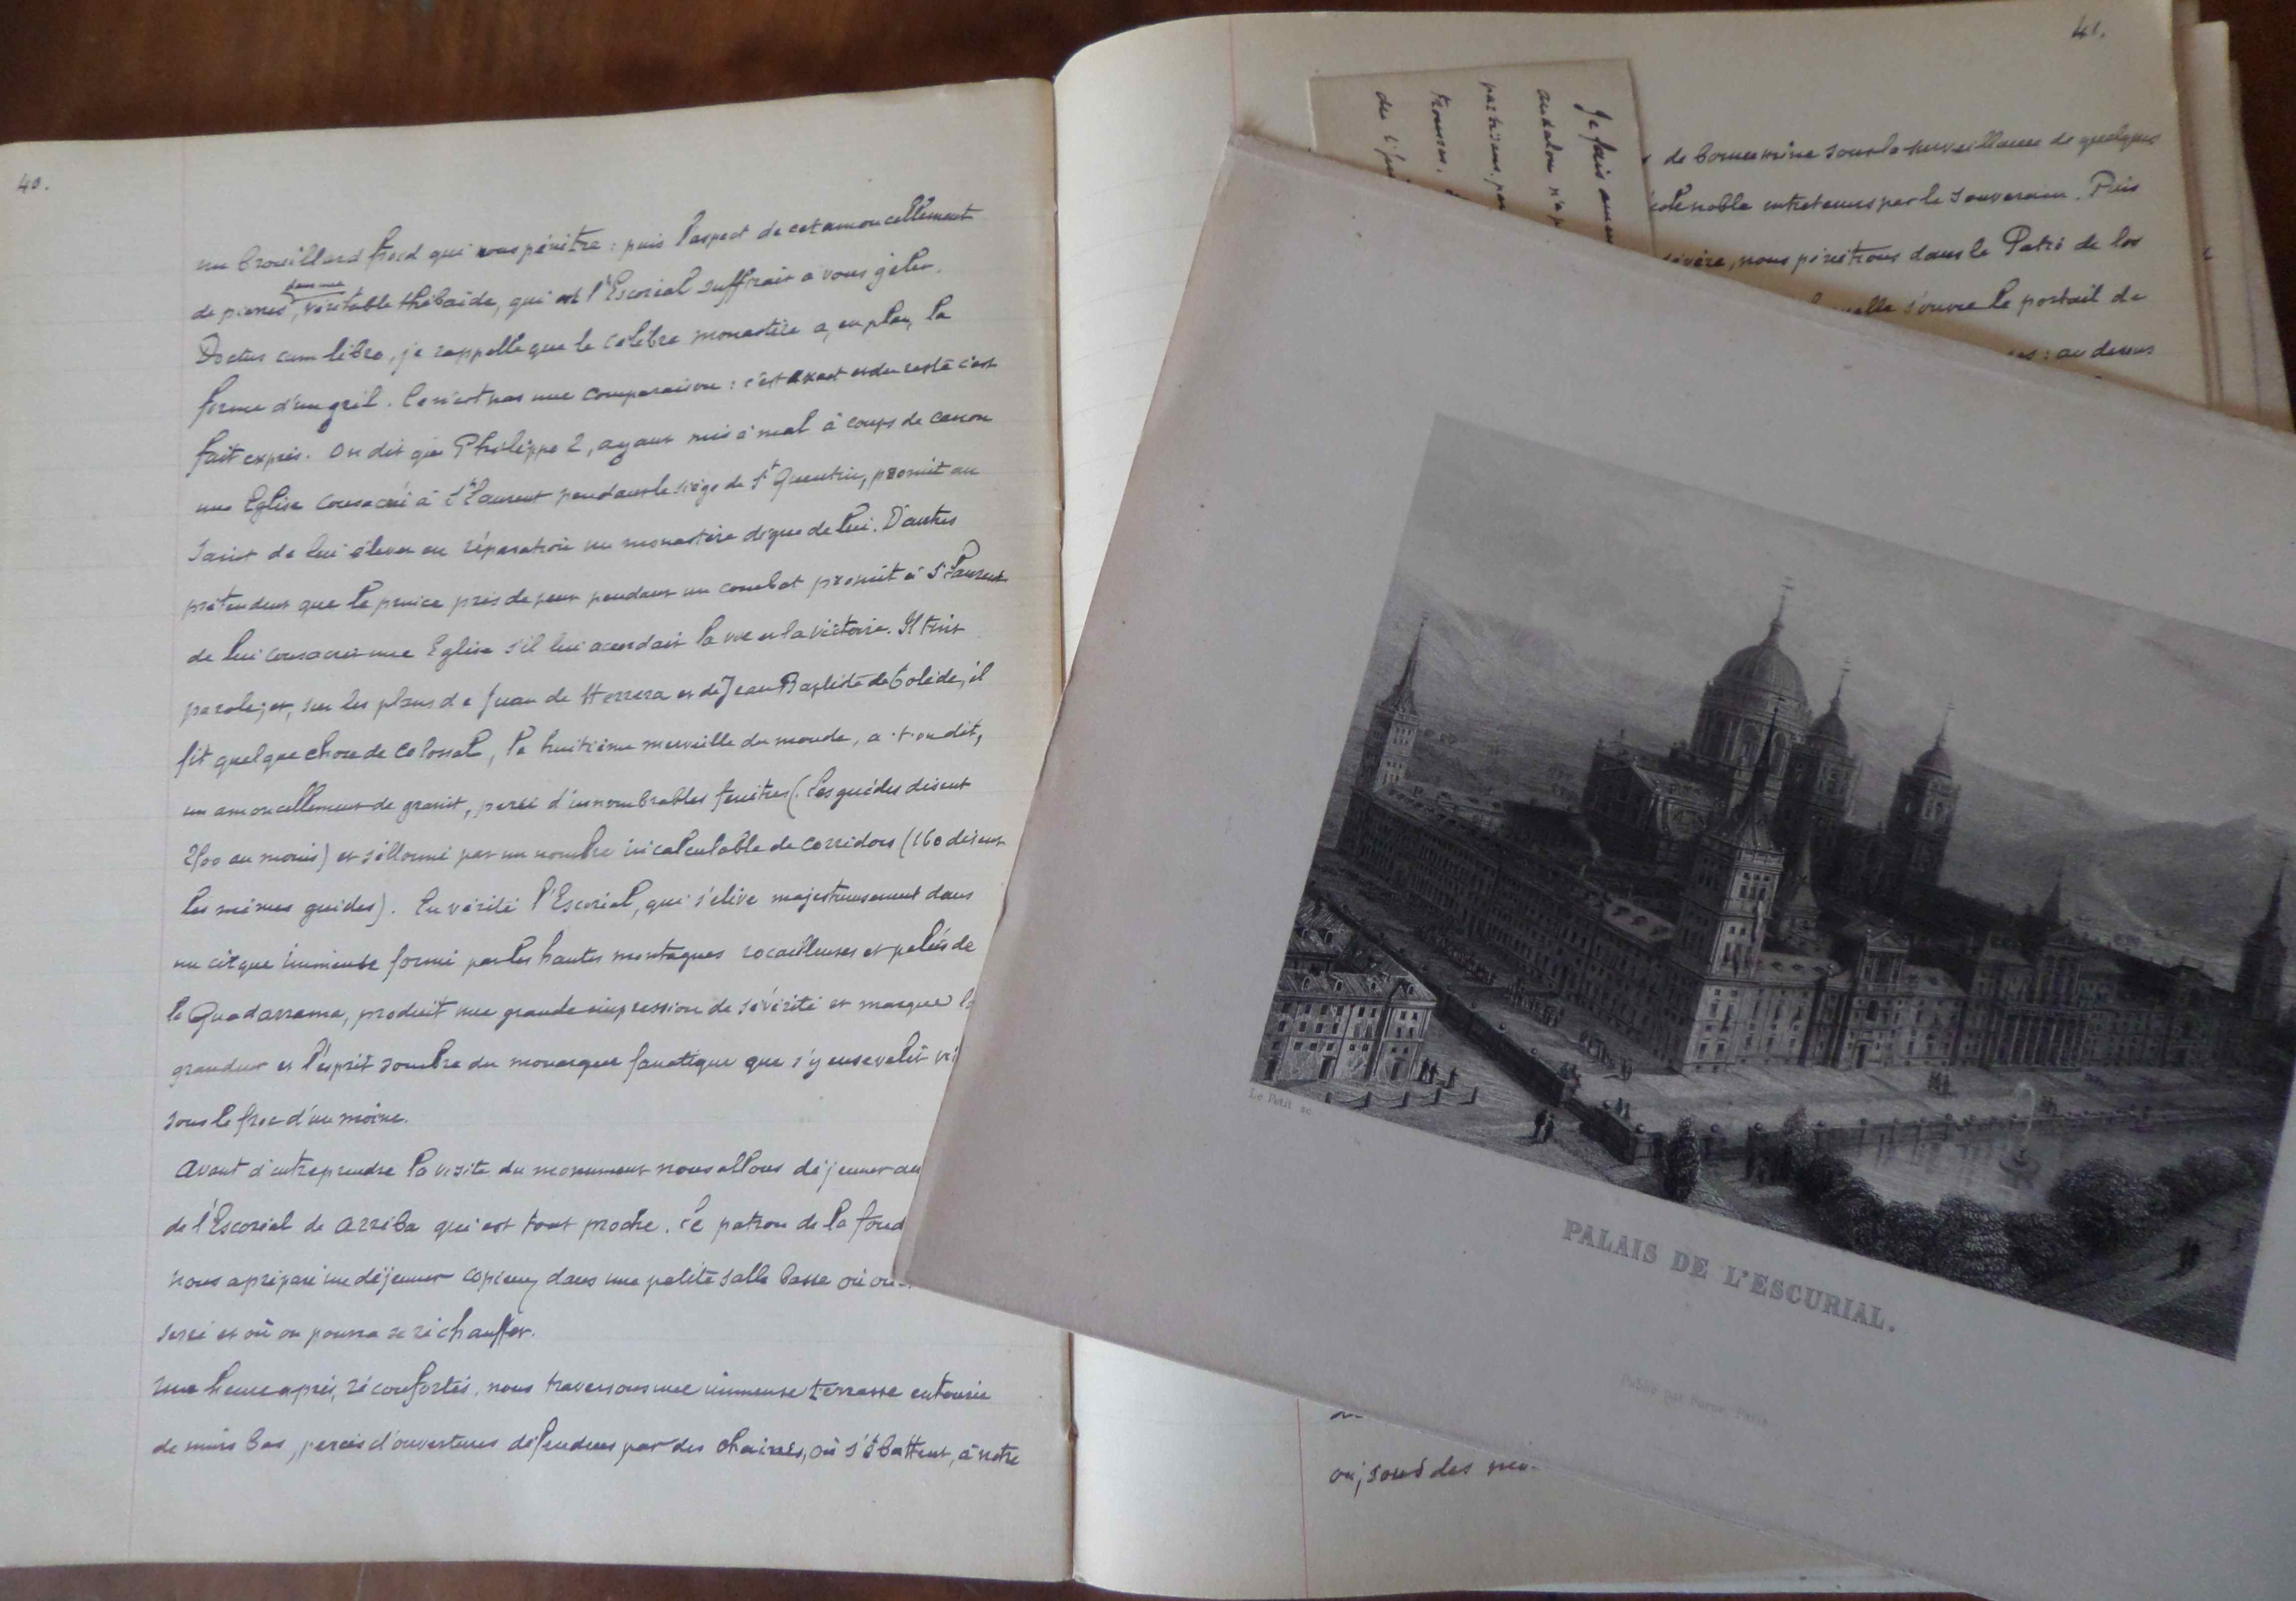 40.
un brouillard froid qui vous pénètre : puis l'aspect de cet amoncellement
dans une
de pierres, véritable thébaïde, qui est l'Escorial suffirait à vous geler.
Doctus cum libro, je rappelle que le célèbre monastère a, en plan, la
forme d'un gril. Ce n'est pas une comparaison : c'est exact et du reste c'est
fait exprès. On dit que Philippe 2, ayant mis à mal à coups de canon
une Eglise consacrée à St Laurent pendant le siège de St Quentin, promit au
Saint de lui élever en réparation un monastère digne de lui. D'autres
prétendent que le prince pris de peur pendant un combat promit à St Laurent
de lui consacrer une Eglise s'il lui accordait la vie et la victoire. Il tint
parole; et, sur les plans de Juan de Herrera et de Jean Baptiste de Tolède, il
fit quelque chose de colossal, la huitième merveille du monde, a-t-on dit,
un amoncellement de granit, percé d'innombrables fenêtres (les guides disent
au moins) et sillonné par un nombre incalculable de corridors (160 disent
les mêmes guides). En vérité l'Escorial, qui s'élève majestueusement dans
un cirque immense formé par les hautes montagnes rocailleuses et pelées de
le Guadarrama, produit une grande impression de sévérité et marque la
grandeur et l'esprit sombre du monarque fanatique que s'y ensevelit
sous le froc d'un moine.
Avant d'entreprendre la visite du monument nous allons déjeuner au
de l'Escorial de Arriba qui est tout proche. Le patron de la fond
nous a préparé un déjeuner copieux dans une petite salle basse où on
serré et où on pourra se réchauffer.
Une heure après, réconfortés, nous traversons une immense terrasse entourée
de murs bas, percés d'ouvertures défendues par des chaînes, où s'ébattent, à notre
41.
Je fais
andalou n'a
des
de bonne mine sous la surveillance de quelques
noble entretenus par le Souverain. Puis
sévère, nous pénétrons dans le Patio de los
laquelle s'ouvre le portail de
: au dessus
Le Petit sc
PALAIS DE L'ESCURIAL.
Publié par Furne, Paris
ou, sous des